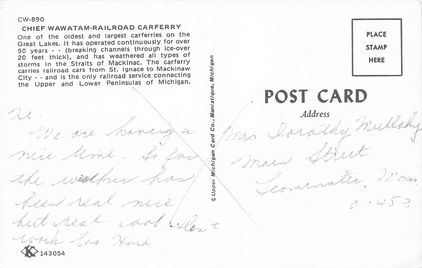 CW-890
CHIEF WAWATAM-RAILROAD CARFERRY
One of the oldest and largest carferries on the
Great Lakes. It has operated continuously for over
50 years - - (breaking channels through ice-over
20 feet thick), and has weathered all types of
storms in the Straits of Mackinac. The carferry
carries railroad cars from St. Ignace to Mackinaw
City - - and is the only railroad service connecting
the Upper and Lower Peninsulas of Michigan.
We are having a
nice time. So far
the weather has
been real nice
but real cool. Don't
work too Hard.
K 143054
© Upper Michigan Card Co., Manistique, Michigan
PLACE
STAMP
HERE
POST CARD
Address
Mrs Dorothy Mullahy
Main Street
Leominster, Mass
01453